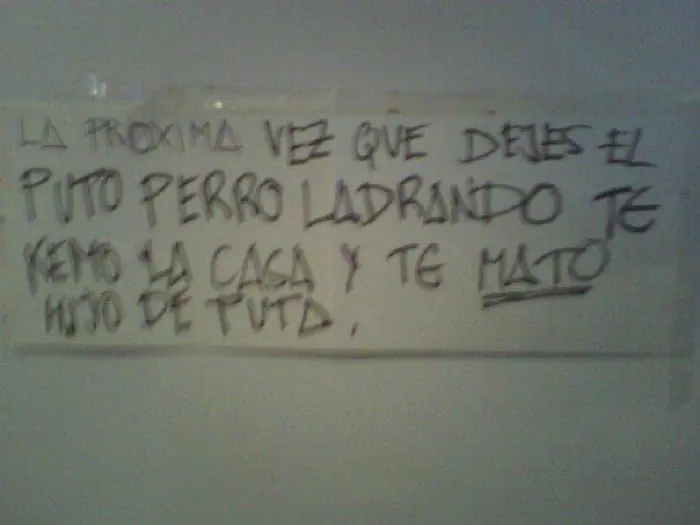 LA PROXIMA VEZ QUE DEJES EL
PUTO PERRO LADRANDO TE
KEMO LA CASA Y TE MATO
HIJO DE PUTA.